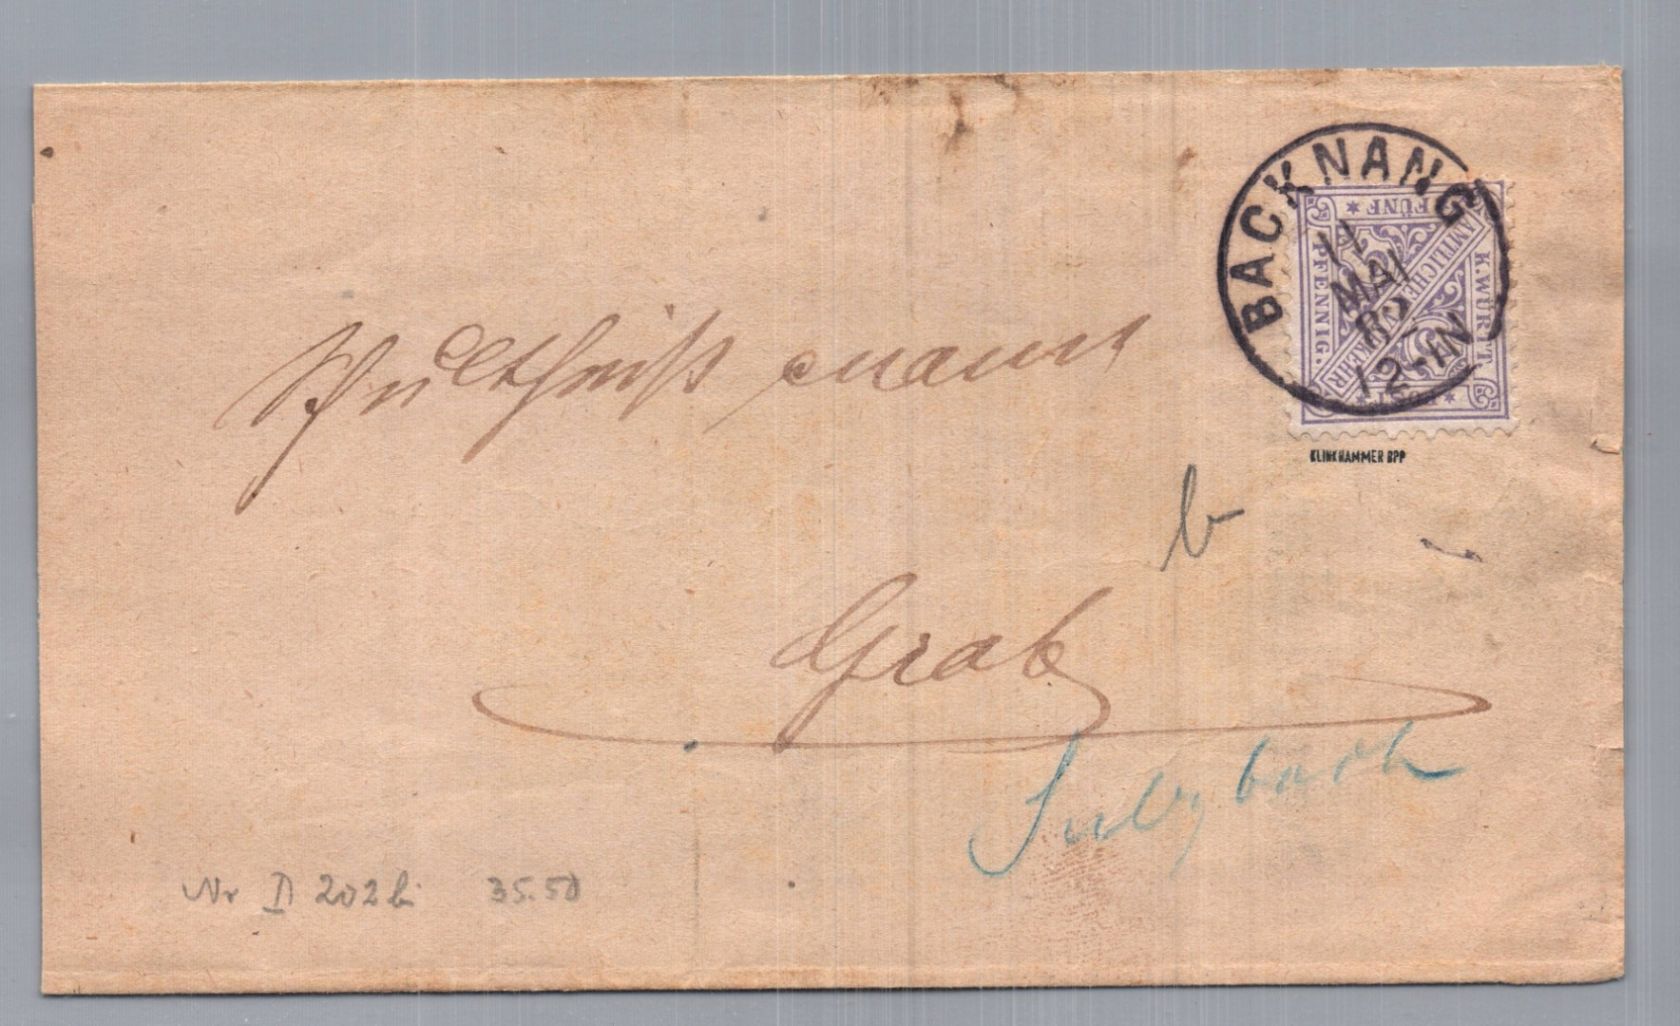 BACKNANG
11
MAI
12-1N
FÜNF
PFENNIG.
AMTLICHER VERKEHR
K.WÜRTT.
POST
KLINKHAMMER BPP
Schultheißenamt
b
Grab
Sulzbach
Nr D 202 b 35.50